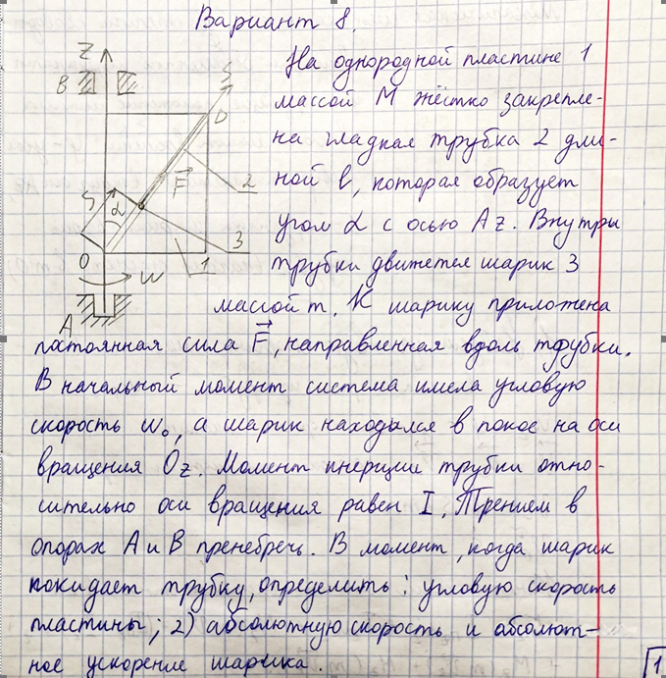 Вариант 8.
На однородной пластине 1
массой М жёстко закрепле-
на гладкая трубка 2 дли-
ной l, которая образует
угол α с осью Az. Внутри
трубки движется шарик 3
массой m. К шарику приложена
постоянная сила F, направленная вдоль трубки.
В начальный момент система имела угловую
скорость w₀, а шарик находился в покое на оси
вращения Oz. Момент инерции трубки отно-
сительно оси вращения равен I. Трением в
опорах А и В пренебречь. В момент, когда шарик
покидает трубку, определить: угловую скорость
пластины; 2) абсолютную скорость и абсолют-
ное ускорение шарика.
Z
B
S
D
F
2
S
α
O
1
3
w
A
1